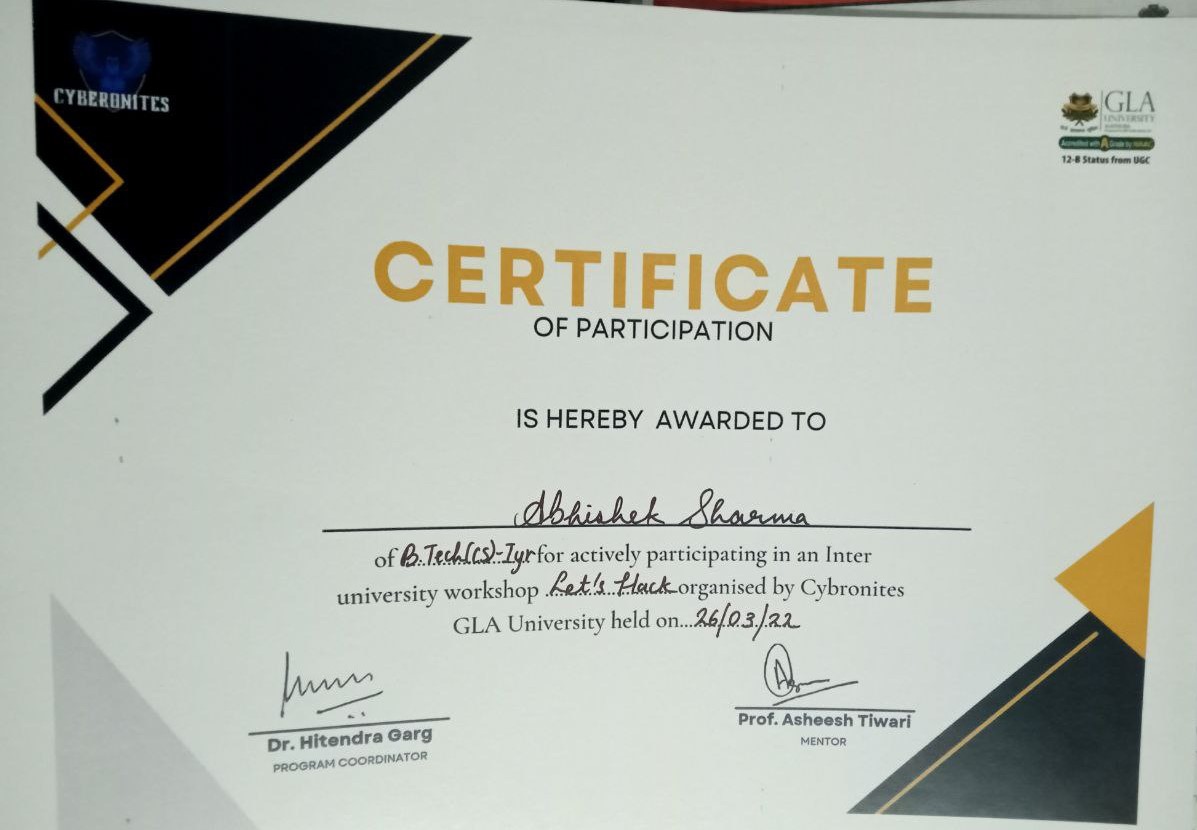 CYBERONITES
GLA
UNIVERSITY
Accredited with A Grade by NAAC
12-B Status from UGC
CERTIFICATE
OF PARTICIPATION
IS HEREBY AWARDED TO
Abhishek Sharma
of B.Tech(CS)-Iyr for actively participating in an Inter
university workshop Let's Hack organised by Cybronites
GLA University held on...26/03/22
Dr. Hitendra Garg
PROGRAM COORDINATOR
Prof. Asheesh Tiwari
MENTOR